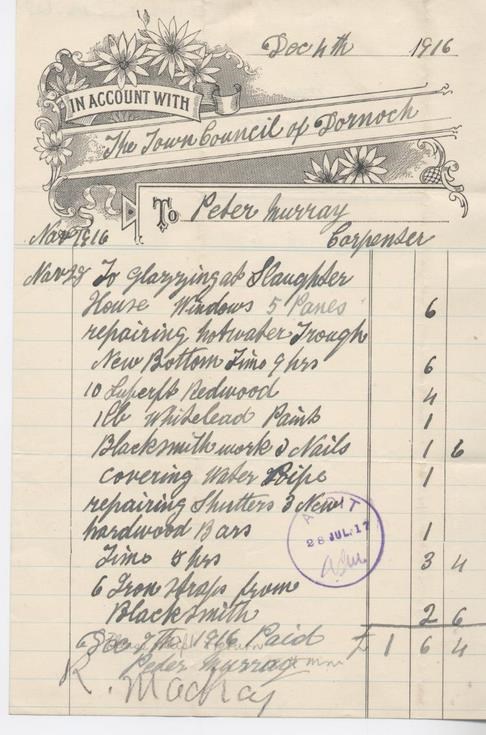 Dec 4th 1916
IN ACCOUNT WITH
The Town Council of Dornoch
To Peter Murray
Carpenter
Nov 1916
Nov 28 To Glazzing at Slaughter
House Windows 5 Panes 6
repairing hotwater Trough
New Bottom Time 9 hrs 6
10 Superft Redwood 4
1lb Whitelead Paint 1
Blacksmith work & Nails 1 6
covering Water Pipe 1
repairing Shutters 3 New
hardwood Bars 1
Time 5 hrs 3 4
6 Iron Straps from
BlackSmith 2 6
£ 1 6 4
Dec 7th 1916 Paid
Peter Murray
R. Mackay
AUDIT
28 JUL. 17